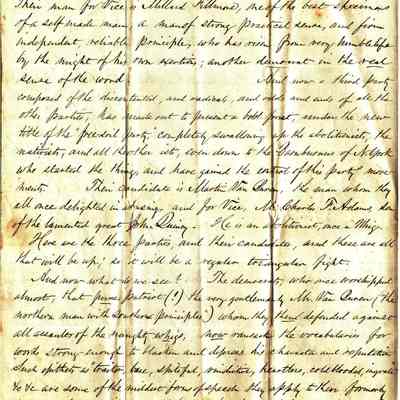 Their man for Vice is Millard Fillmore, one of the best specimens
of a self made man, a man of strong practical sense, and firm
independent, reliable principles, who has risen from very humble life
by the might of his own exertions; another democrat in the real
sense of the word. And now a third party
composed of the discontented, and radical, and odds and ends of all the
other parties, has made out to present a bold front, under the new
title of the freesoil party, completely swallowing up the abolitionists, the
nativists, and all the other ists, even down to the Barnburners of N. York
who started the thing, and have gained the control of this party move
ment. Their candidate is Martin Van Buren, the man whom they
all once delighted in abusing, and for Vice, Mr. Charles F. Adams, son
of the lamented great John Quincy. He is an abolitionist, once a Whig.
Here are the three parties, and their candidates, and these are all
that will be up; so it will be a regular triangular fight.
And now what do we see? The democrats, who once worshipped
almost, that pure patriot (!) the very gentlemanly Mr. Van Buren (the
northern man with Southern principles) whom they then defended against
all assaults of the naughty whigs, now ransack the vocabularies for
words strong enough to blacken and depress his character and reputation
Such epithets as traitor, base, spiteful, vindictive, heartless, cold blooded, ingrate
&c &c are some of the mildest forms of speech they apply to their formerly